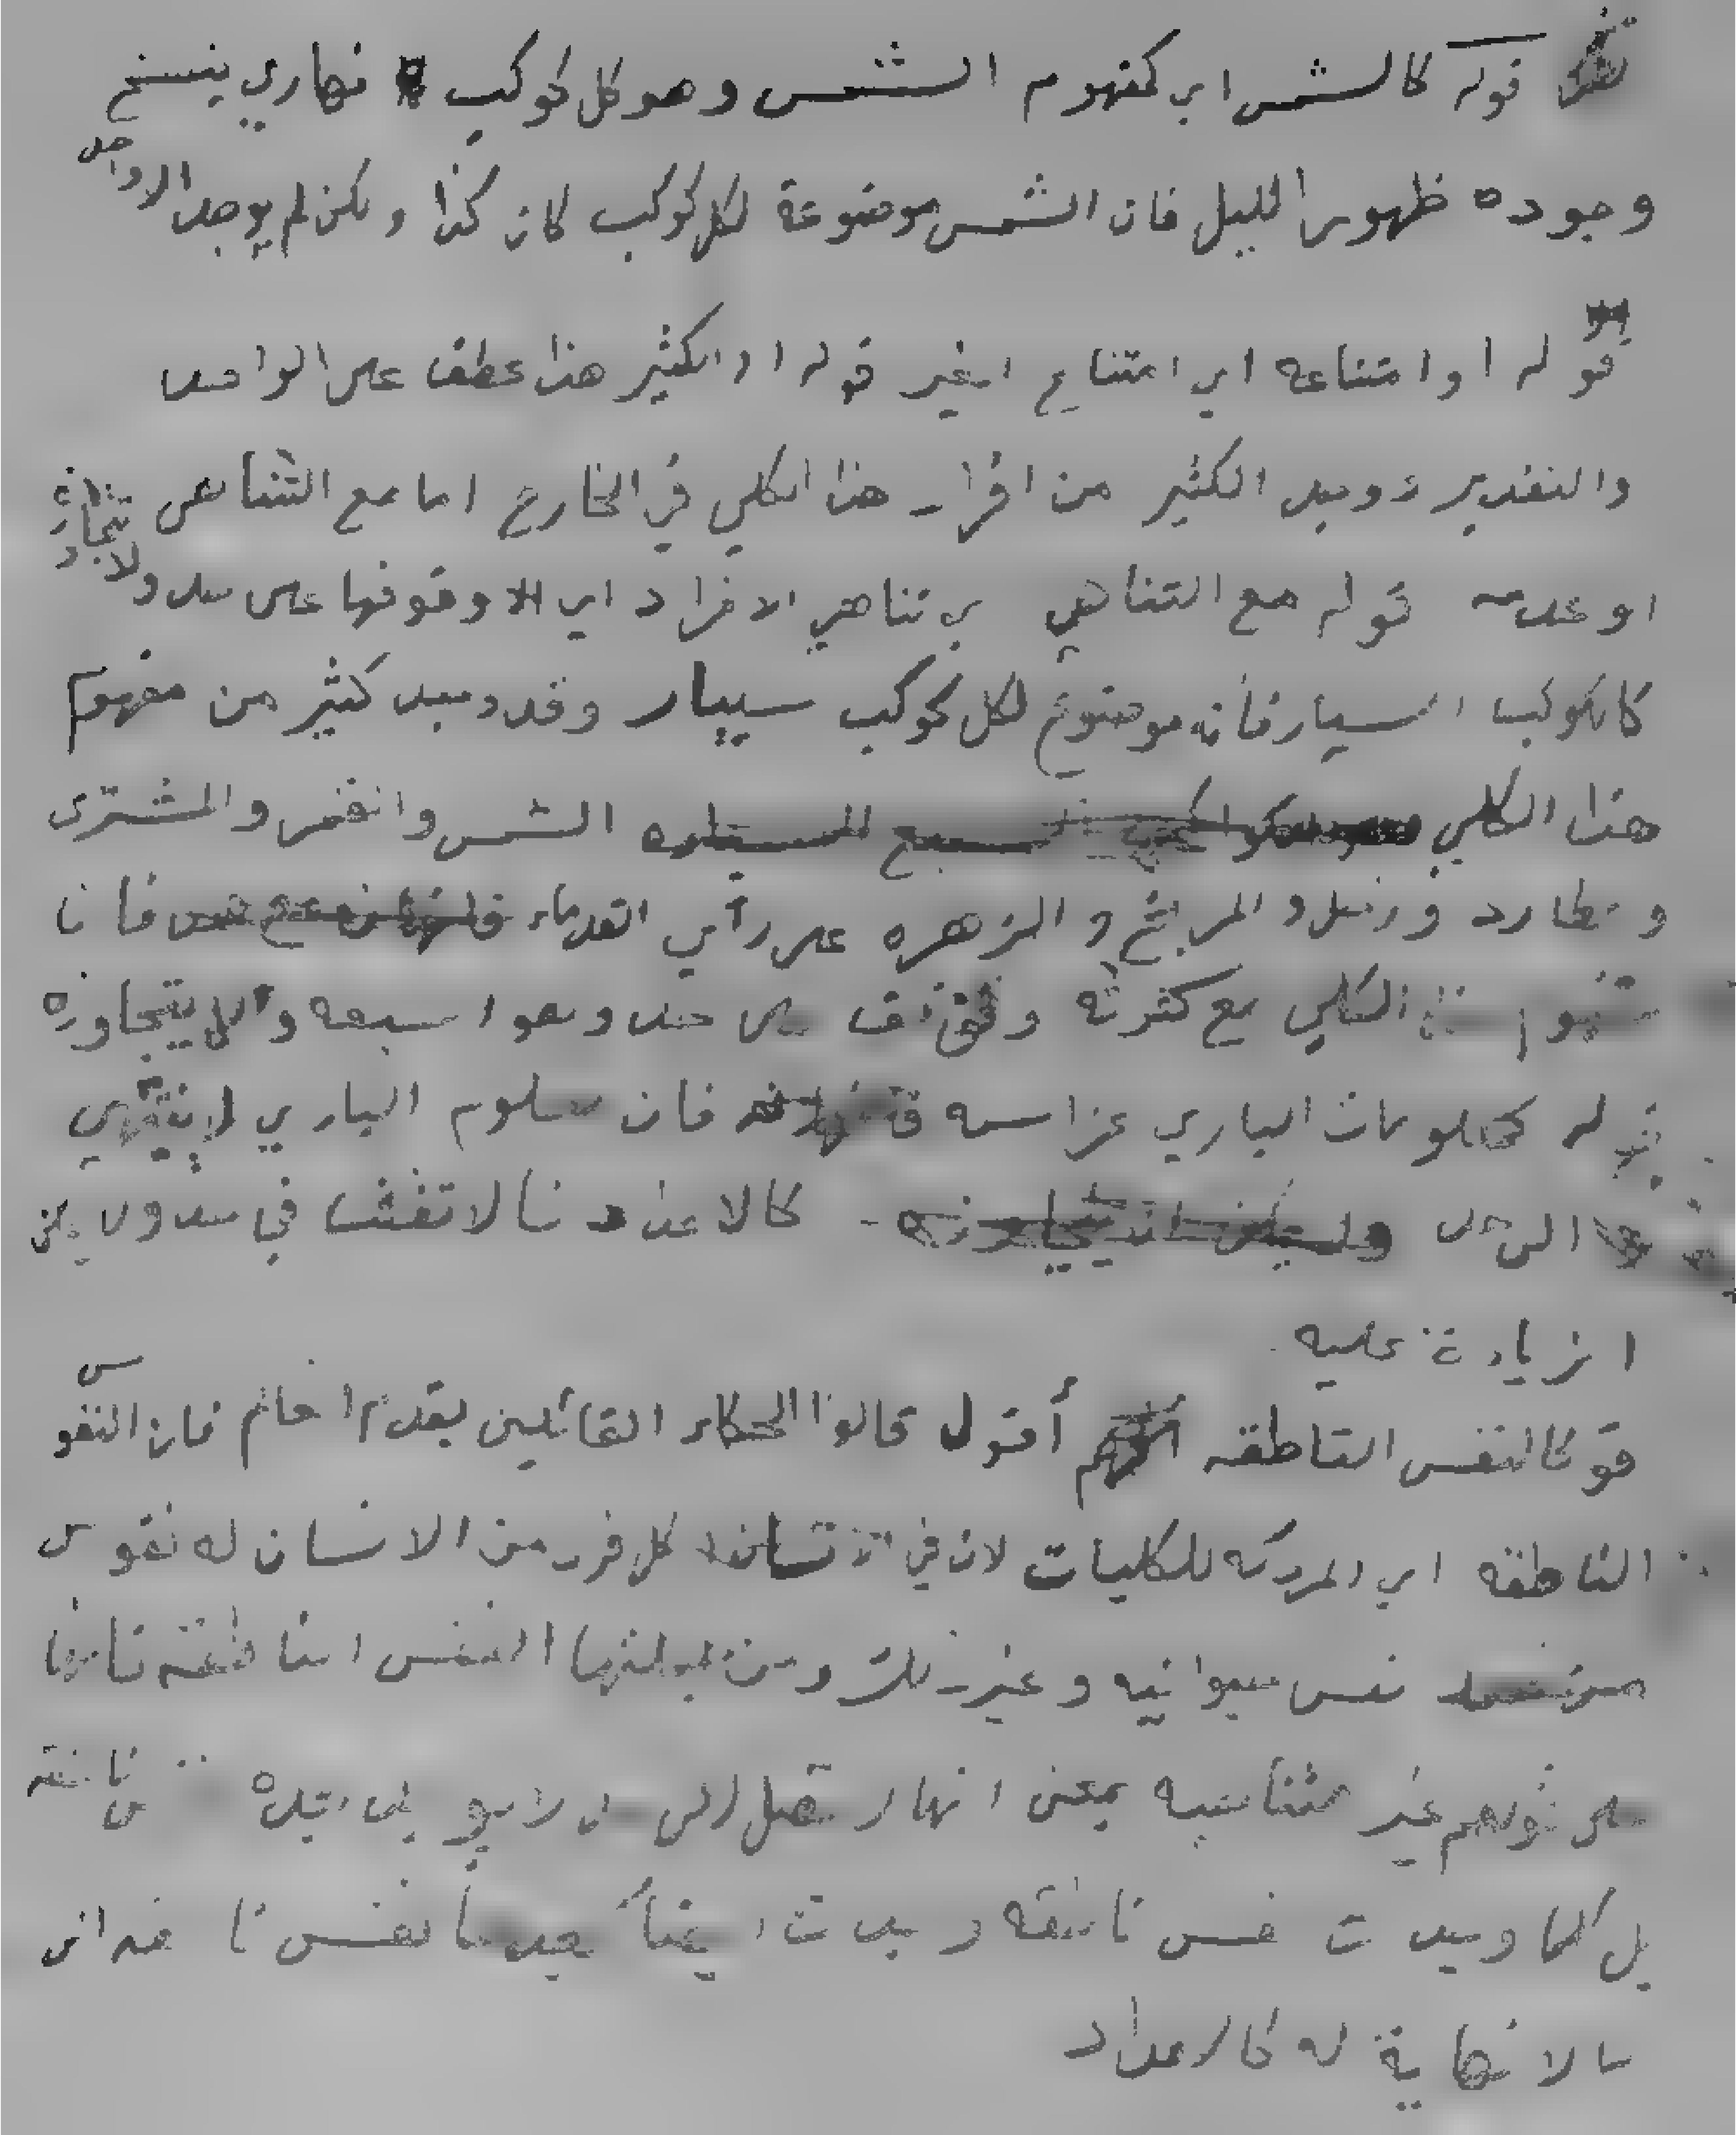 قوله كالشمس اي كمفهوم الشمس وهو كل كوكب نهاري ينسخ
وجوده ظهور الليل فان الشمس موضوعة لكل كوكب كان كذا ولكن لم يوجد الا واحد
قوله او امتناعه اي امتناع الغير قوله او الكثير هذا عطف على الواحد
والتقدير او وجد الكثير من افراد هذا الكلي في الخارج اما مع التناهي
او عدمه قوله مع التناهي اي تناهي الافراد اي وقوفها على حد ولا
كالكوكب السيار فانه موضوع لكل كوكب سيار وقد وجد كثير من مفهوم
هذا الكلي الشمس والقمر والمشترى
وعطارد وزحل والمريخ والزهره على رأي القدماء فان
مفهوم هذا الكلي مع كثرته على حد وهو سبعه يتجاوزه
قوله كمعلومات الباري عز اسمه فان معلوم الباري لا ينتهي
الى حد كالاعداد في حد
الزيادة عليه
قو كالنفس الناطقه أقول قالوا الحكماء القائلين بقدم العالم فان النفوس
الناطقه اي المدركه للكليات لان في كل فرد من الانسان له نفوس
نفس حيوانيه وغير ذلك ومن جملتها النفس الناطقة فانها
على قولهم غير متناهيه بمعنى انها لا تصل الى حد لا ناطقه
بل كلما وجدت نفس ناطقه وجدت ايضاً بعدها نفس ناطقه الى
ما لا نهاية له كالاعداد